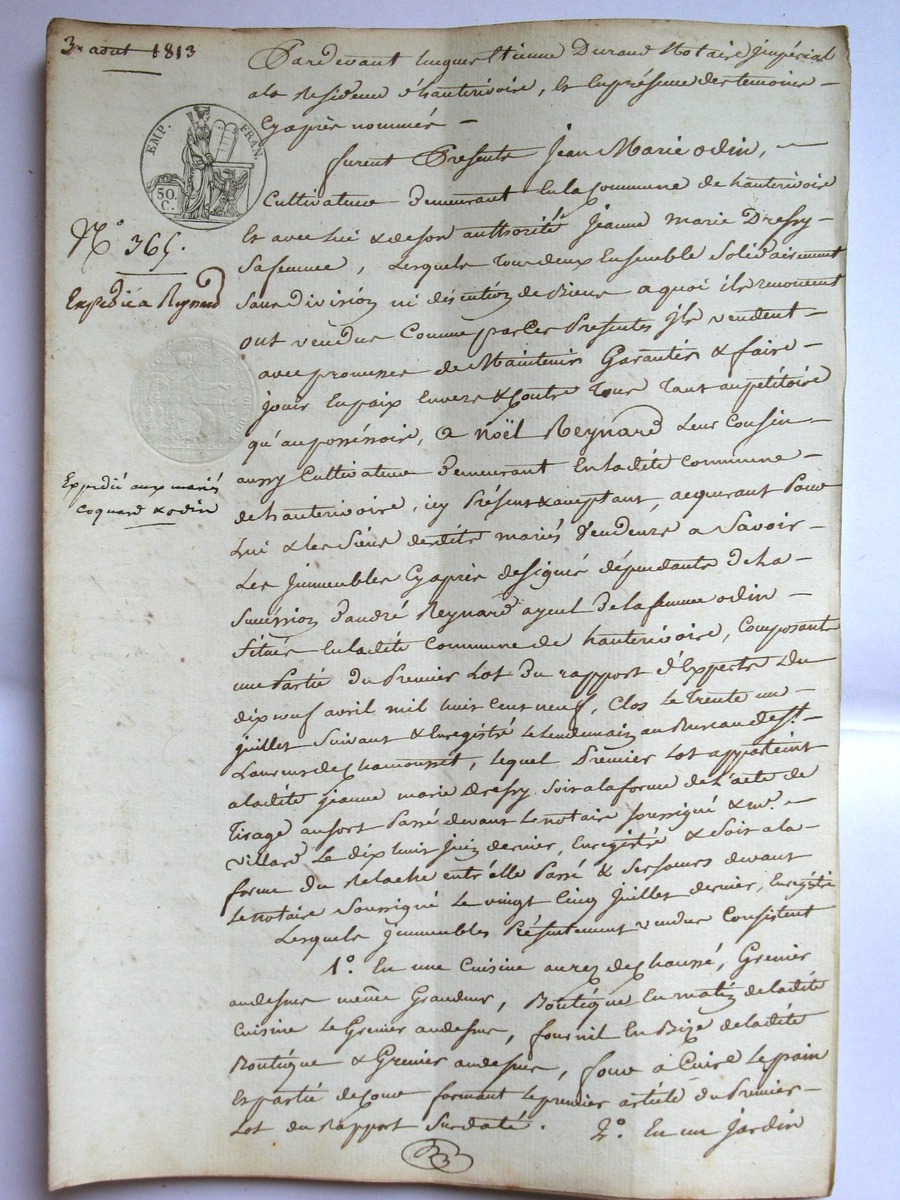 3 aout 1813
EMP. FRAN.
50. C.
N.° 365.
Expedié a Reynard
Expedié aux mariés
Coquard & odin
Pardevant hugues Etienne Durand Notaire jmpérial
a la Residence d'hauterivoire, Et En présence des temoins
Cyaprès nommés
furent Presents Jean Marie odin,
Cultivateur Demeurant En la Commune de hauterivoire
Et avec Lui & de son authorité Jeanne marie Dressy
Sa femme, Lesquels Tous deux Ensemble Solidairement
Sans division ni discution de Biens a quoi ils renoncent
ont vendus Comme par Ces Presentes Jls vendent
avec promesses de Maintenir Garantir & faire
jouir En paix Envers & Contre Tous Tant au petitoire
qu'au possessoire, a noël Reynard Leur Cousin
aussy Cultivateur Demeurant En ladite Commune
de hauterivoire, icy Présent & acceptant, acquerant Pour
Lui & les Siens desdits mariés Vendeurs a Savoir
Les jmmeubles Cyaprès designés dépendants de La
Succéssion D'andré Reynard ayeul De la femme odin
Situés En ladite Commune de hauterivoire, Composant
une Partie du Premier Lot Du rapport d'Experts Du
dix neuf avril mil huit Cent neuf, Clos Le Trente un
juillet Suivant & Enregistré Le Lendemain au Bureau de S.t
Laurent de Chamousset, Lequel Premier Lot appartient
a ladite jeanne marie Dressy Soit a la forme de L'acte de
Tirage au sort Passé devant Le notaire soussigné & m.e
villard Le dix huit juin dernier, Enregistré & Soit a la
forme du Relache entr'élle Passé & Ses sœurs devant
Le notaire Soussigné Le vingt Cinq juillet dernier, Enregistré
Lesquels jmmeubles Présentement vendus Consistent
1.° En une Cuisine au rez de Chaussé, Grenier
au dessus même Grandeur, Boutique En matin de ladite
Cuisine Le Grenier au dessus, fournil En Bize de ladite
Boutique & Grenier au dessus, four à Cuire Le pain
Et partie de Cour formant Le premier article du Premier
Lot du Rapport Surdaté. 2.° En un jardin